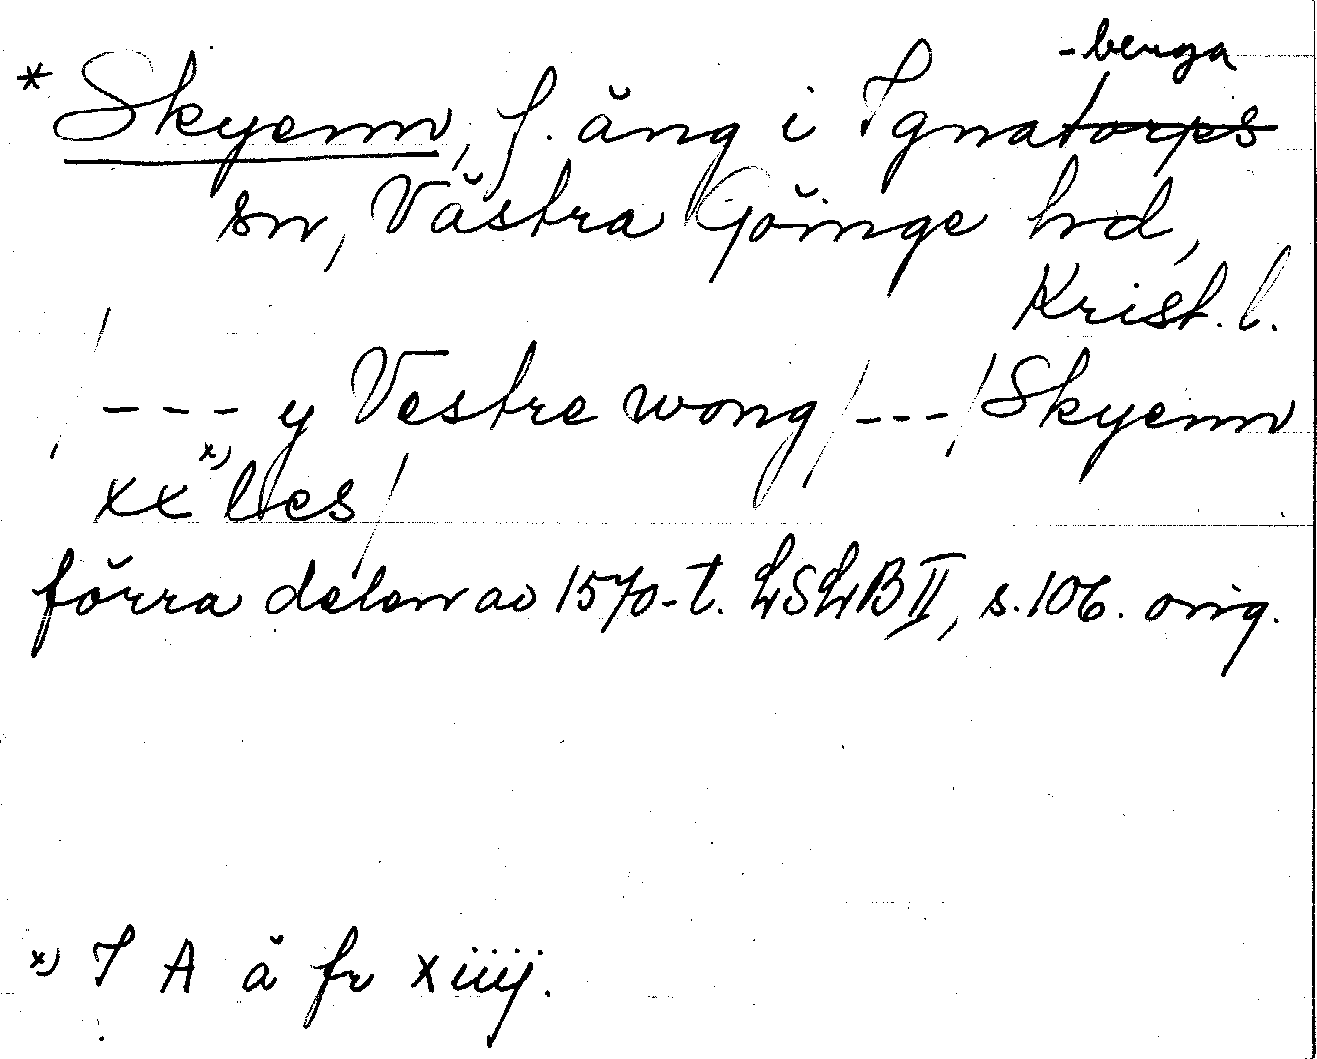 -benga
* Skyenn, f. äng i Ignatorps
sn, Västra Göinge hd,
Krist. l.
/ --- y Vestre wong / --- / Skyenn
xx x) lles /
förra delen av 1570-t. LSLB II, s. 106. orig.
x) I A ä fr xiiij.